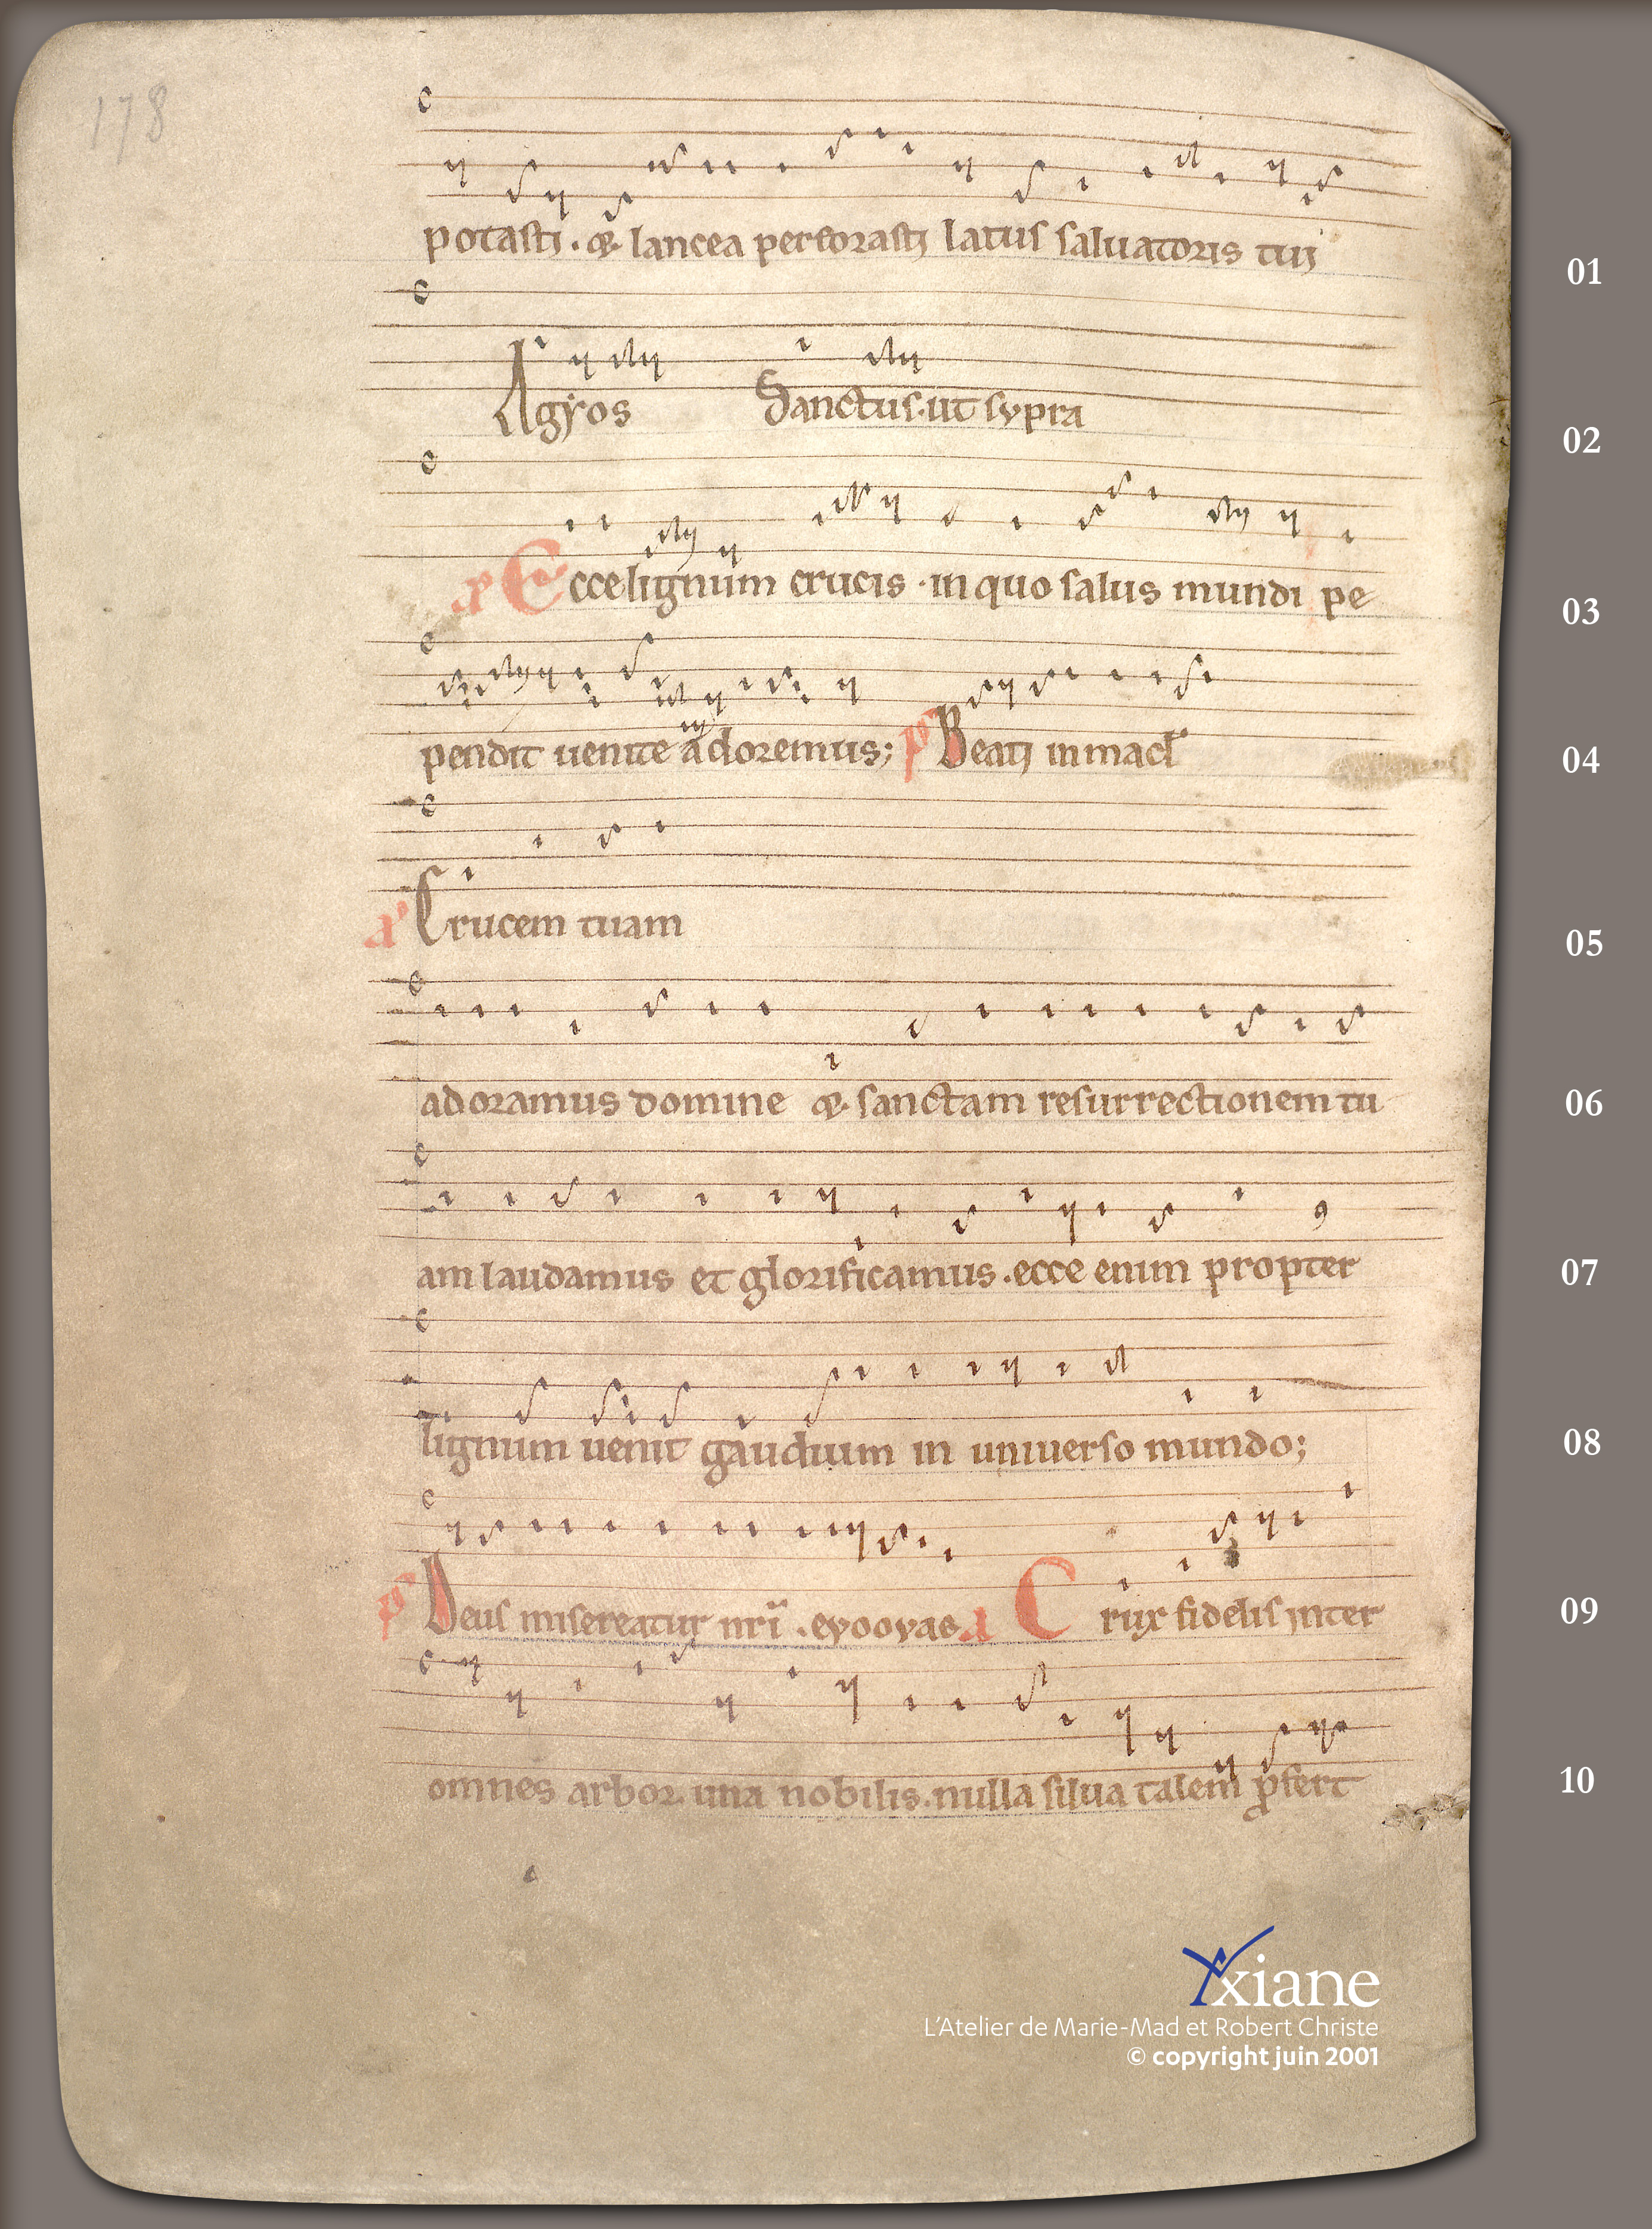 178
potastj . & lancea perforastj latus saluatoris tuj
01
Agẏos Sanctus . ut sypra
02
aͥ Ecce lignum crucis . in quo salus mundi pe
03
pendit uenite adoremus; pˢ Beatj inmacł
04
aͥ Crucem tuam
05
adoramus domine & sanctam resurrectionem tu
06
am laudamus et glorificamus . ecce enim propter
07
lignum uenit gaudium in uniuerso mundo;
08
pˢ Deus misereatur nr̄i . eyooyas a Crux fidelis jnter
09
omnes arbor una nobilis . nulla silua talem ꝓfert
10
Yxiane
L'Atelier de Marie-Mad et Robert Christe
© copyright juin 2001